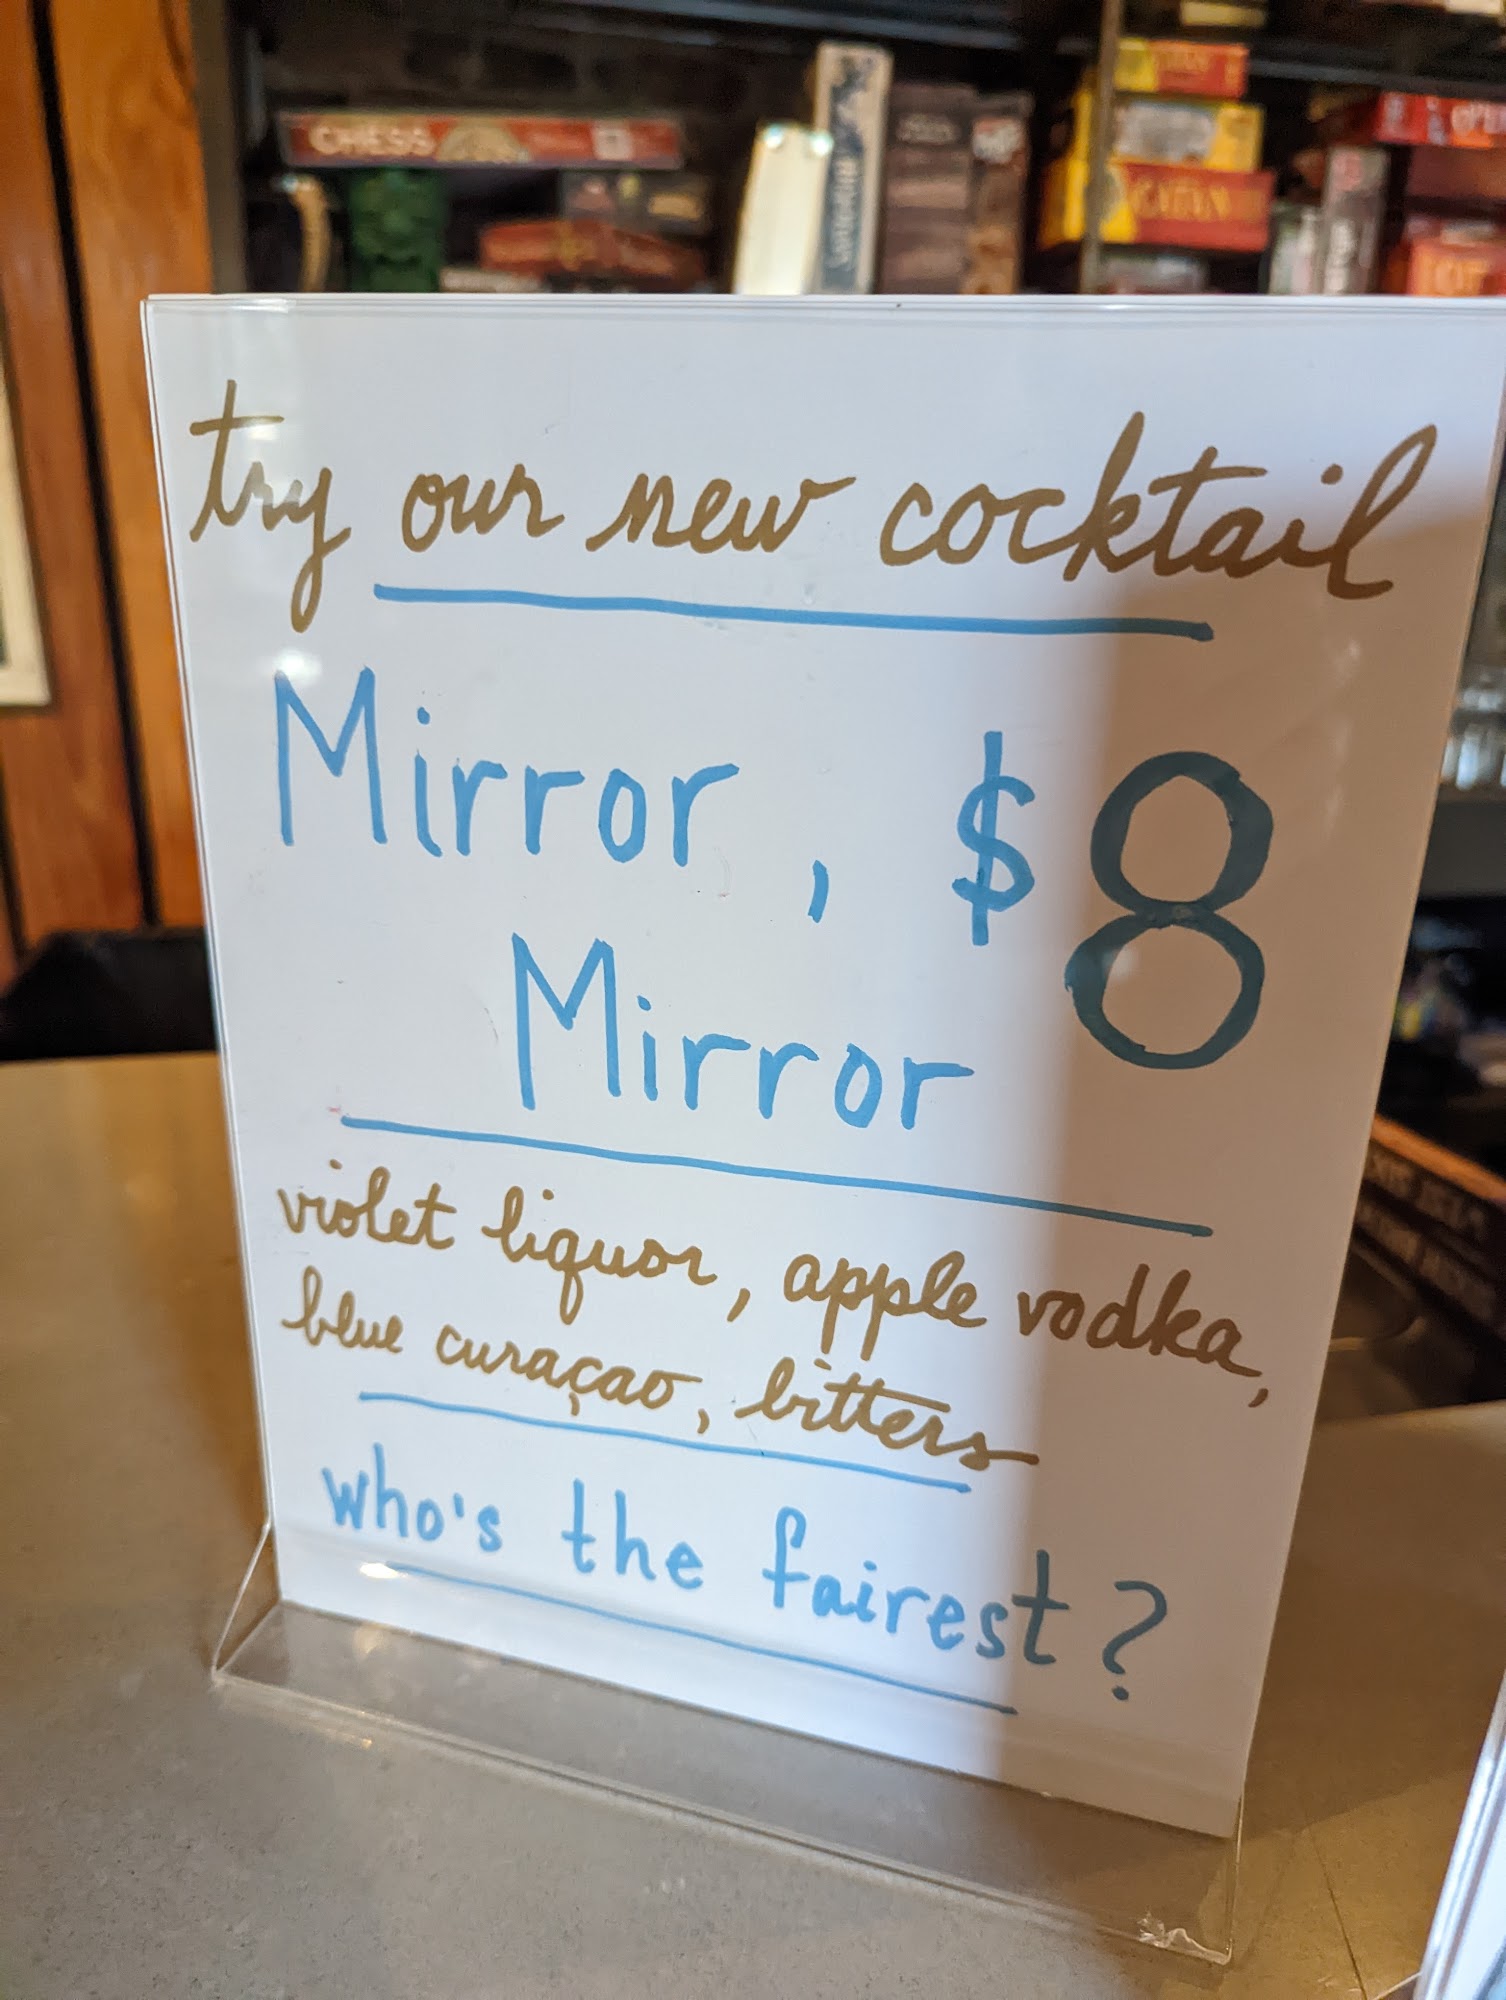 CHESS
CATAN
try our new cocktail
Mirror, $8
Mirror
violet liquor, apple vodka,
blue curaçao, bitters
who's the fairest?